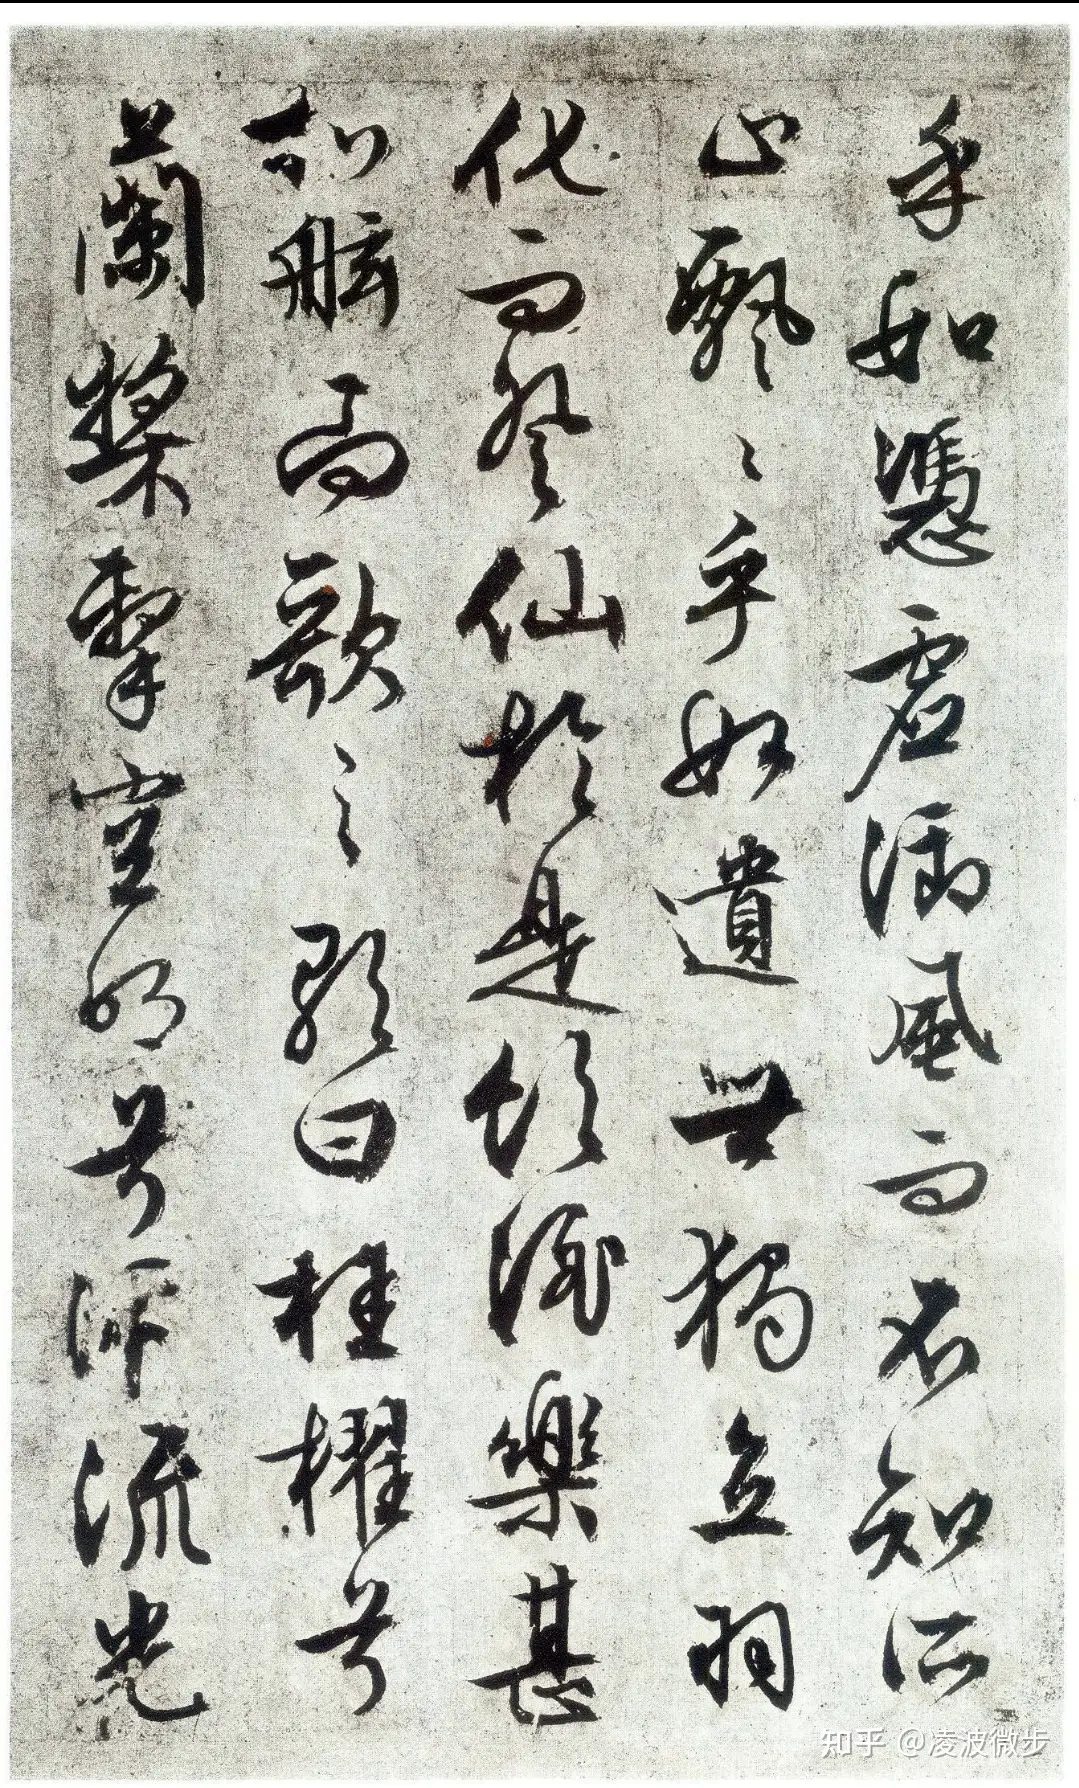 乎如憑虛御風而不知所
止飄〻乎如遺世獨立羽
化而登仙於是飲酒樂甚
扣舷而歌之歌曰桂櫂兮
蘭槳擊空明兮泝流光
知乎 @凌波微步